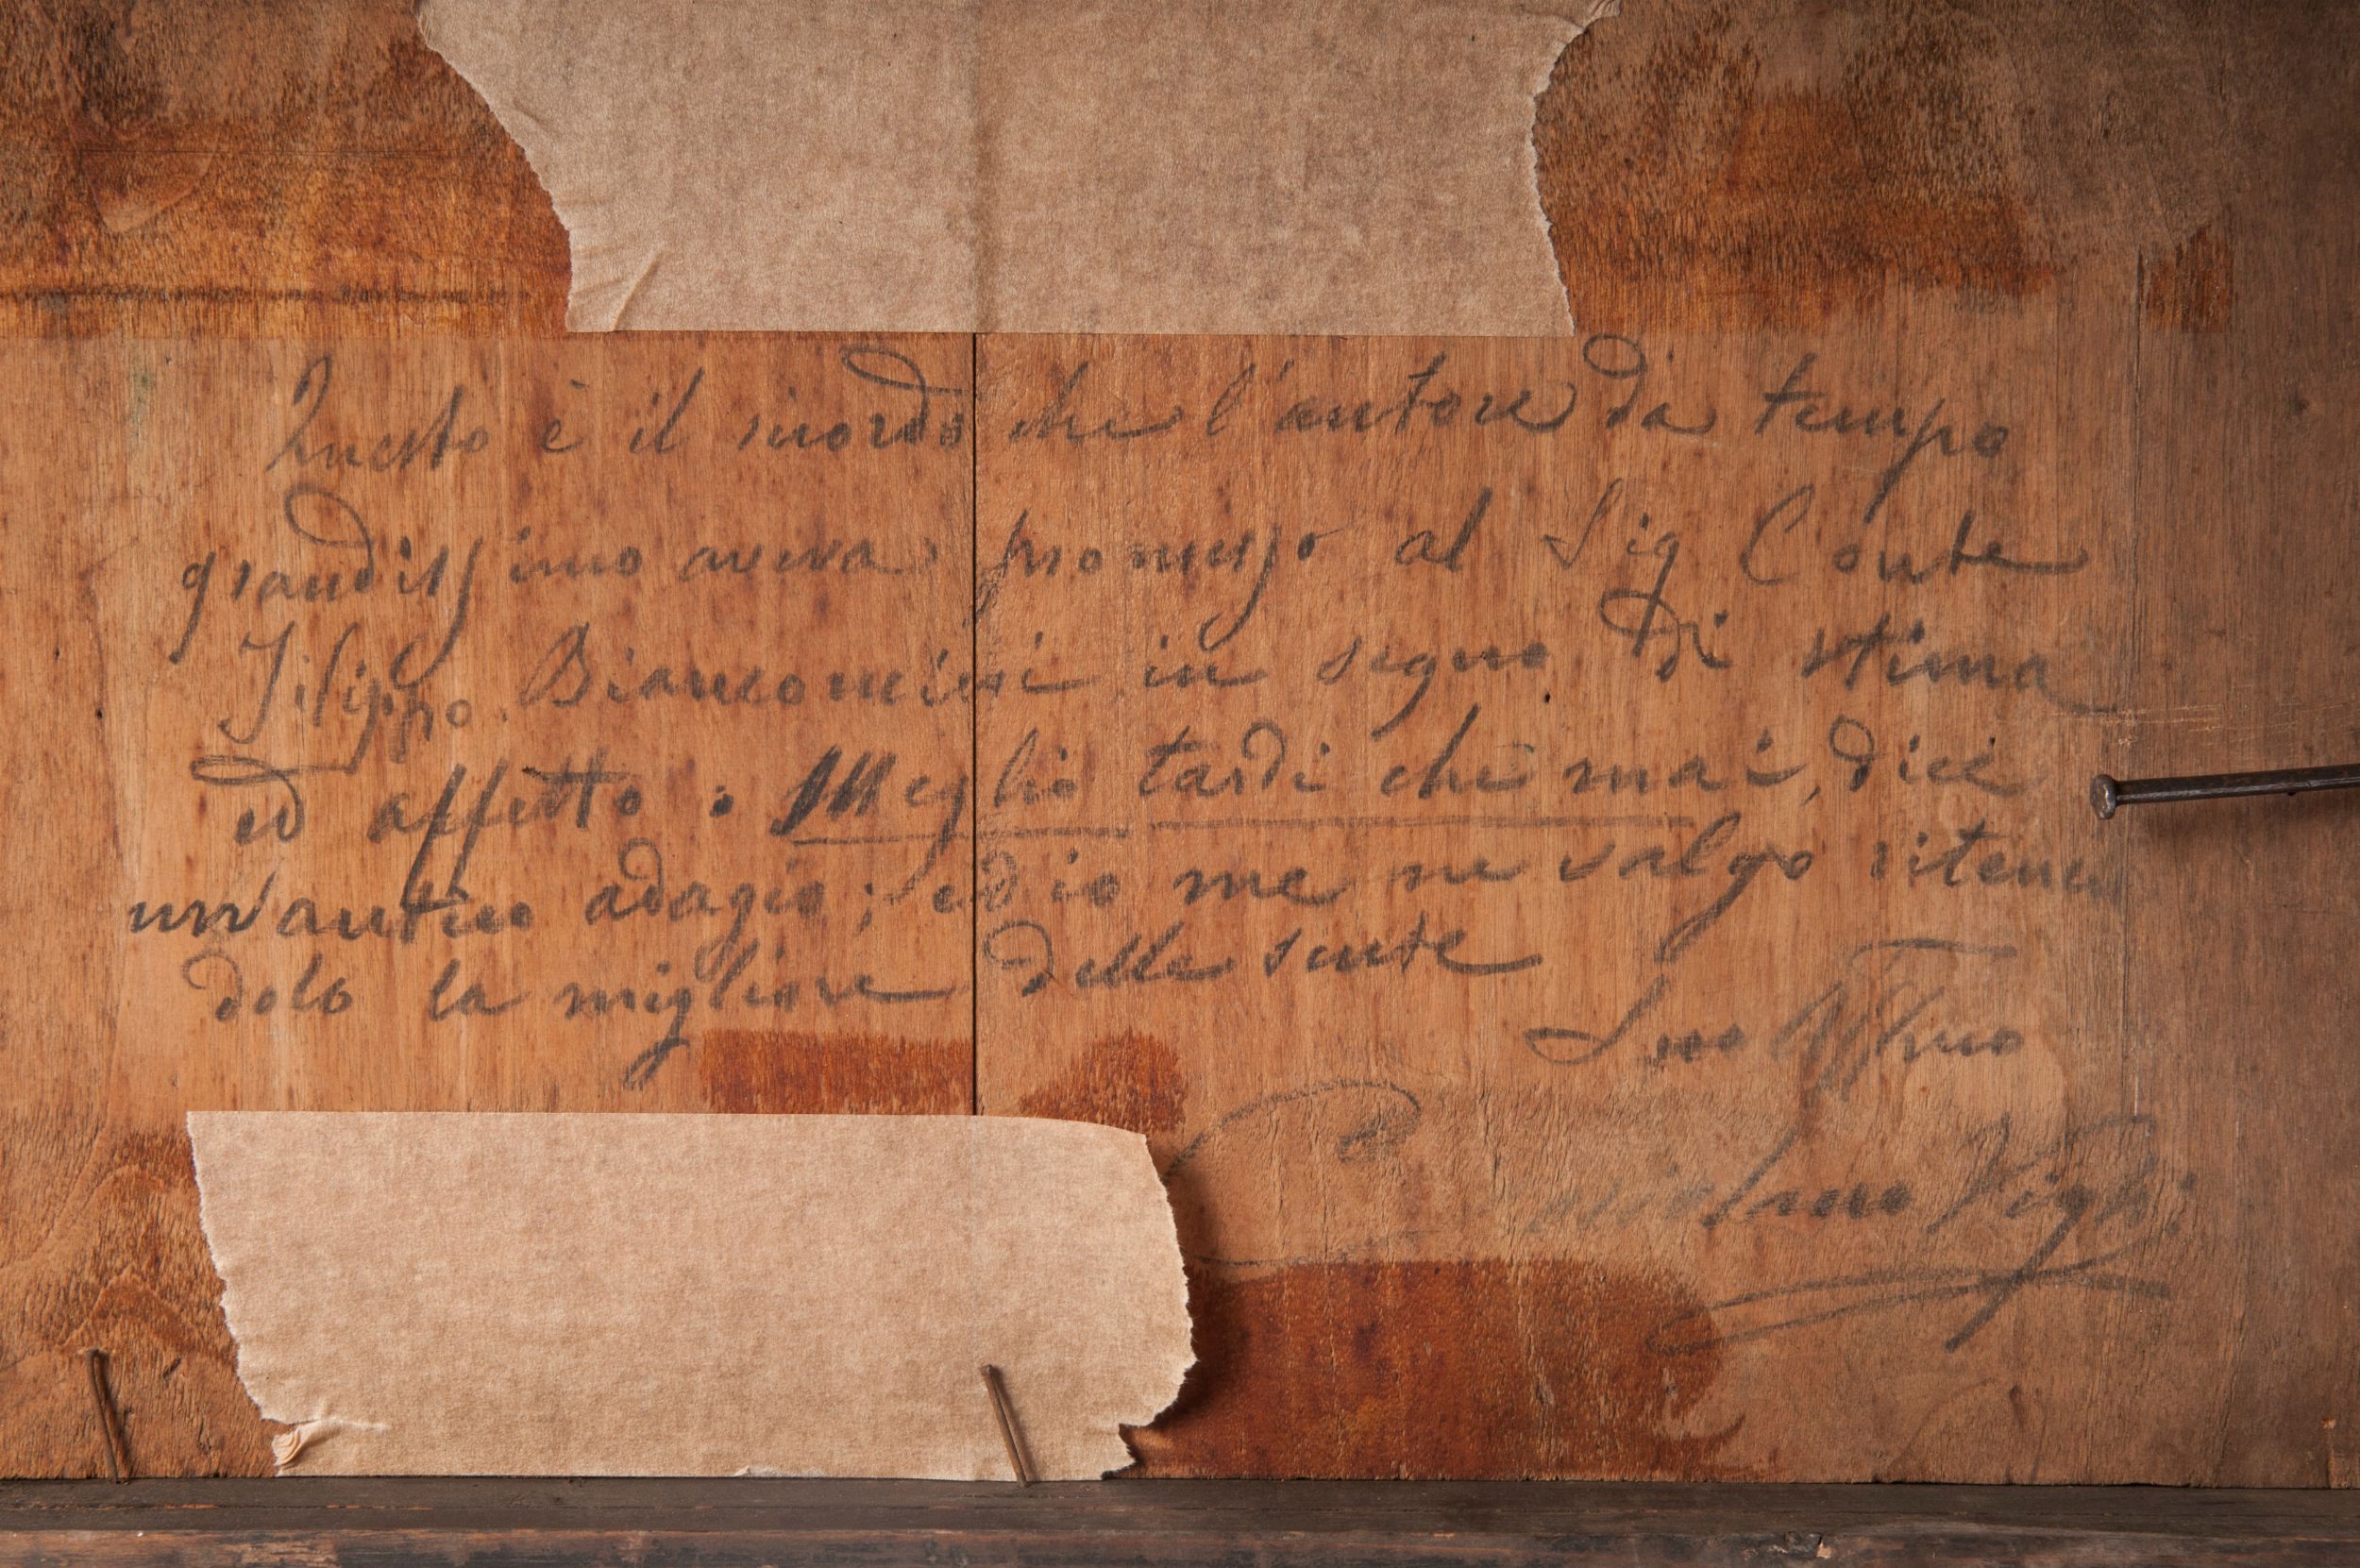 Questo è il ricordo che l'autore da tempo
grandissimo aveva promesso al Sig Conte
Filippo Bianconcini in segno di stima
ed affetto: Meglio tardi che mai, dice
un'antico adagio; ed io me ne valgo ritenen
dolo la migliore delle scuse
Suo Affmo
Vighi